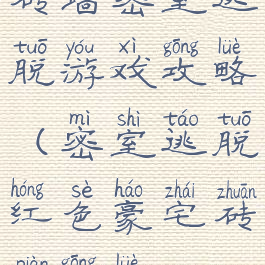 砖墙密室逃
tuō yóu xì gōng lüè
脱游戏攻略
mì shì táo tuō
（密室逃脱
hóng sè háo zhái zhuān
红色豪宅砖
gōng lüè